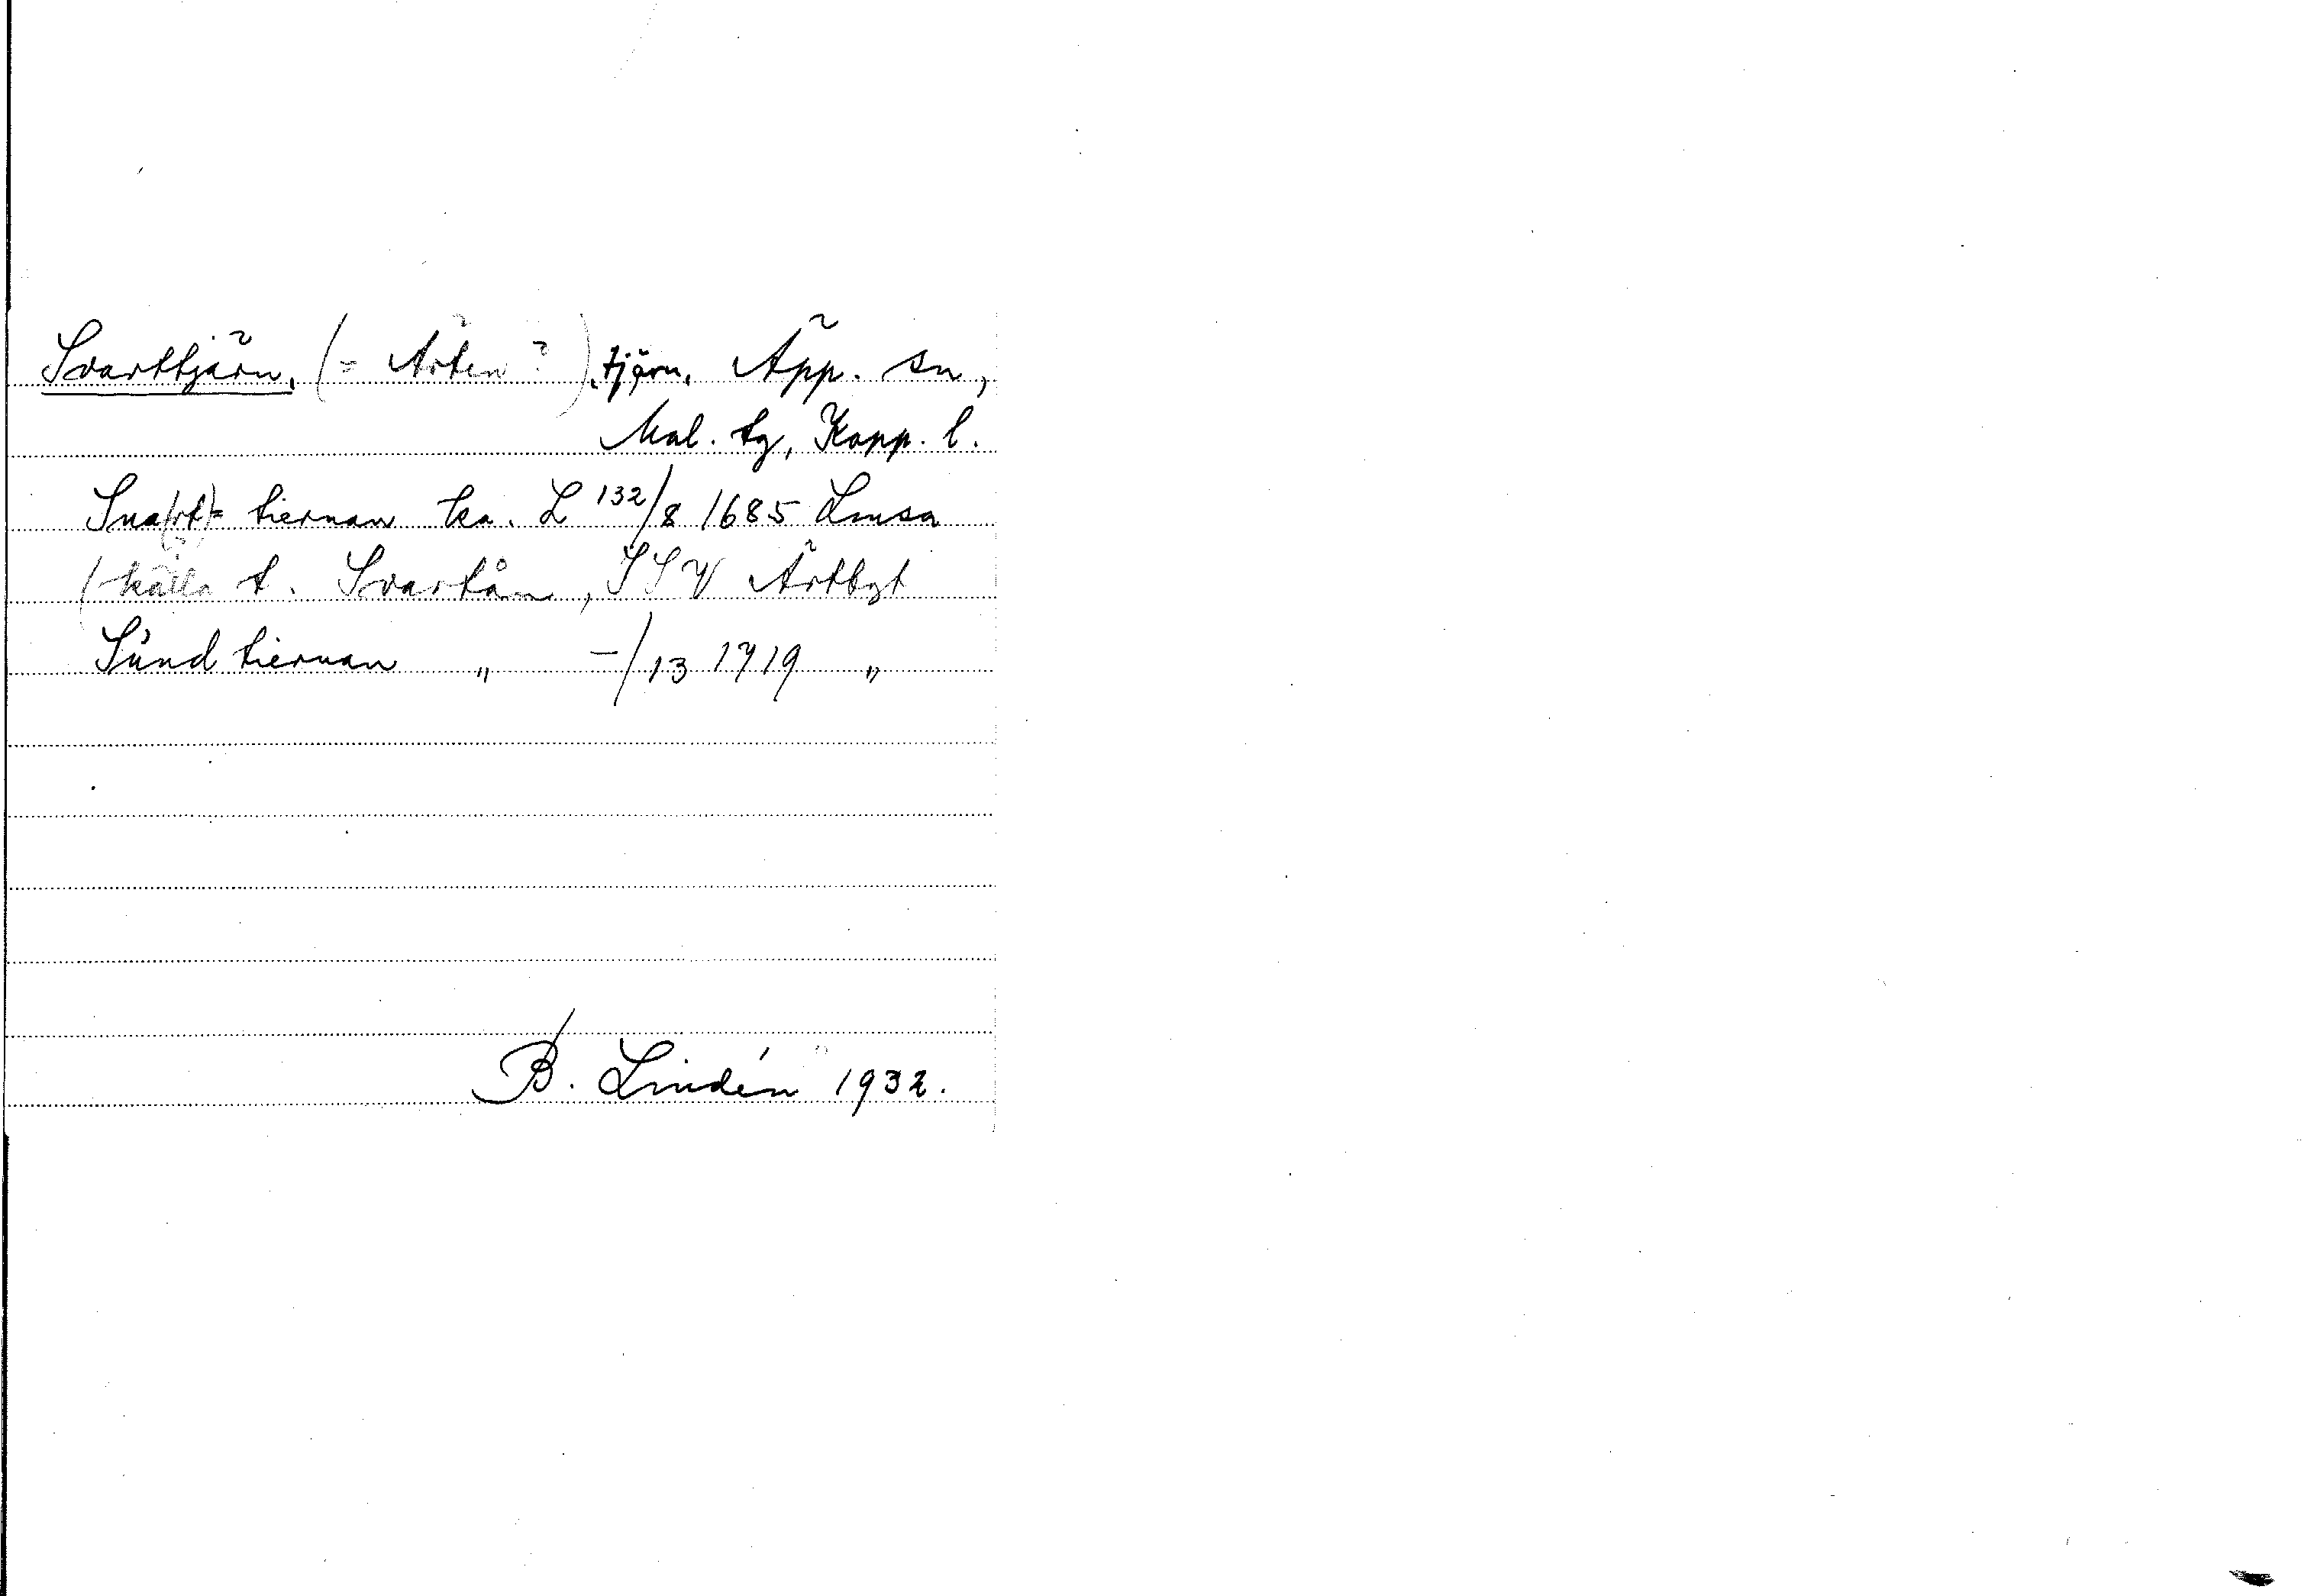 Svarttjärn, (= Ärten?), tjärn, Äpp. sn,
Mal. tg, Kopp. l.
Sua(rt)= tiernan ka. L 132/8 1685 Limsa
(källa t. Svartån, SSV Ärtbgt
Sund tiernan „ -/13 1719 „
B. Lindén 1932.